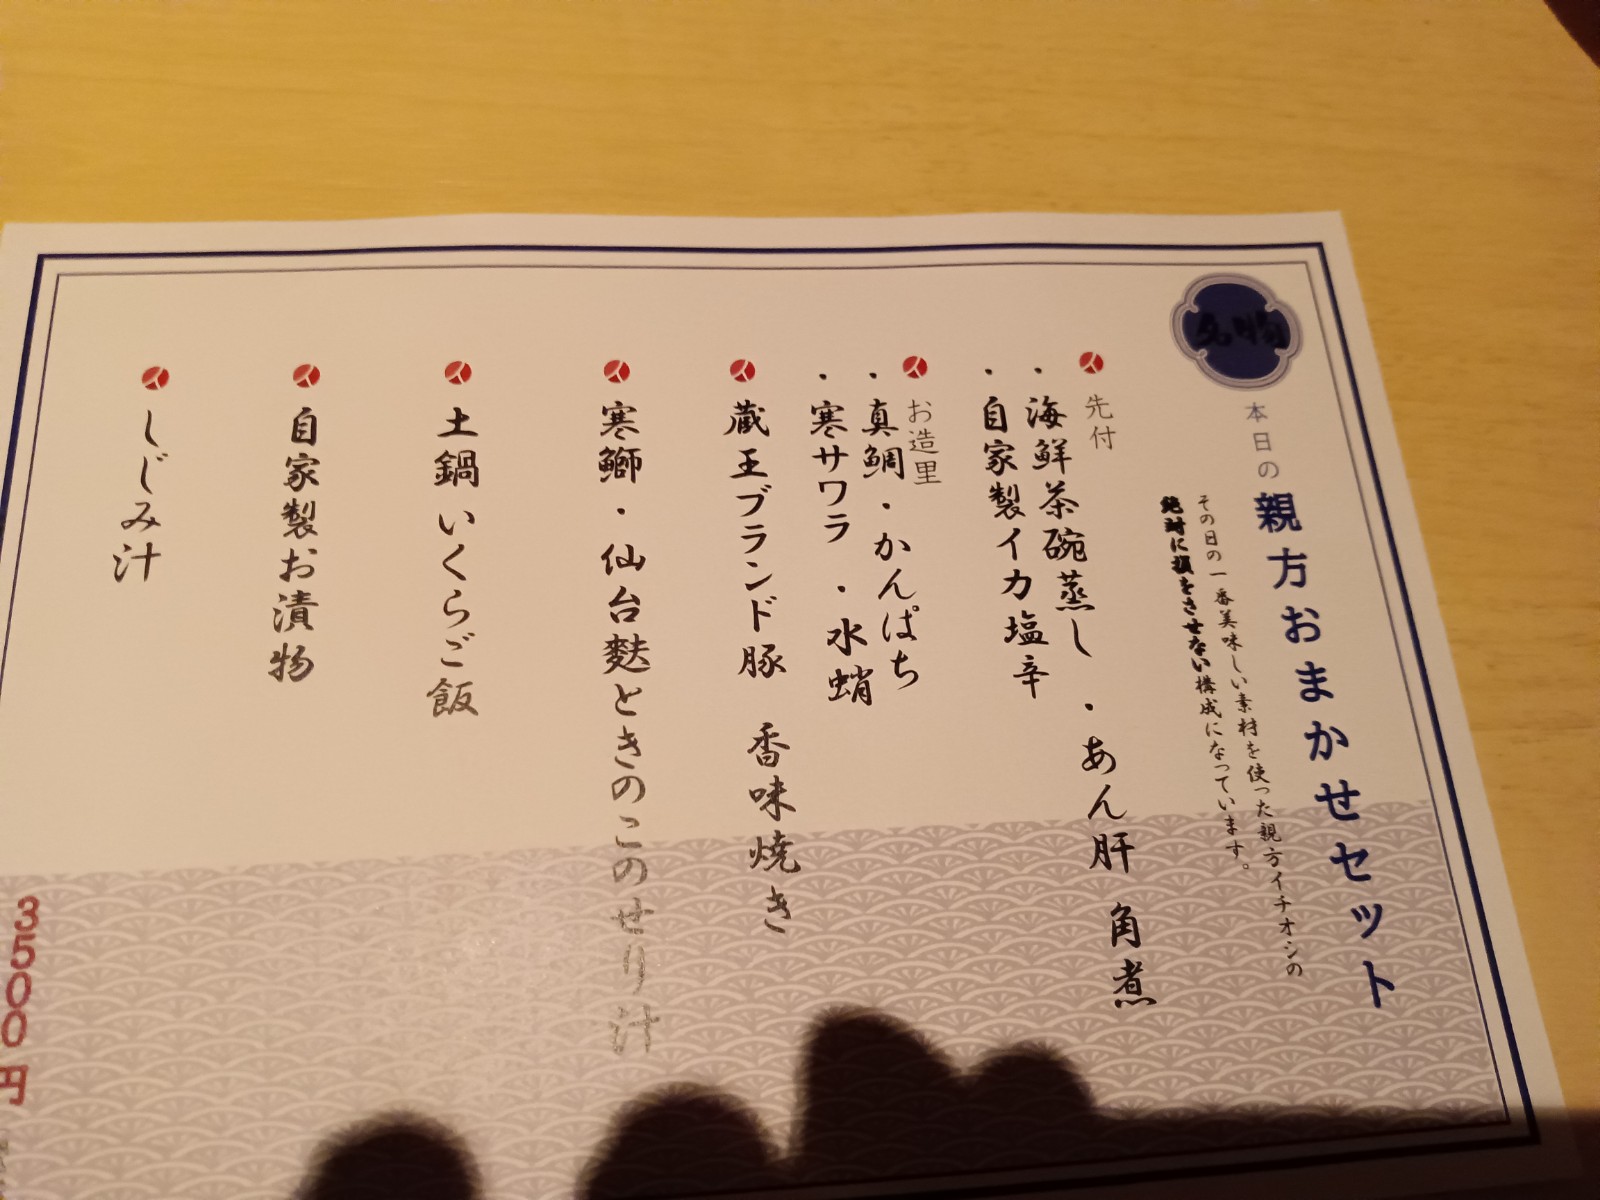 名物
本日の親方おまかせセット
その日の一番美味しい素材を使った親方イチオシの
絶対に損をさせない構成になっています。
先付
・海鮮茶碗蒸し ・あん肝 角煮
・自家製イカ塩辛
お造里
・真鯛・かんぱち
・寒サワラ ・水蛸
蔵王ブランド豚 香味焼き
寒鰤・仙台麩ときのこのせり汁
土鍋いくらご飯
自家製お漬物
しじみ汁
3500円